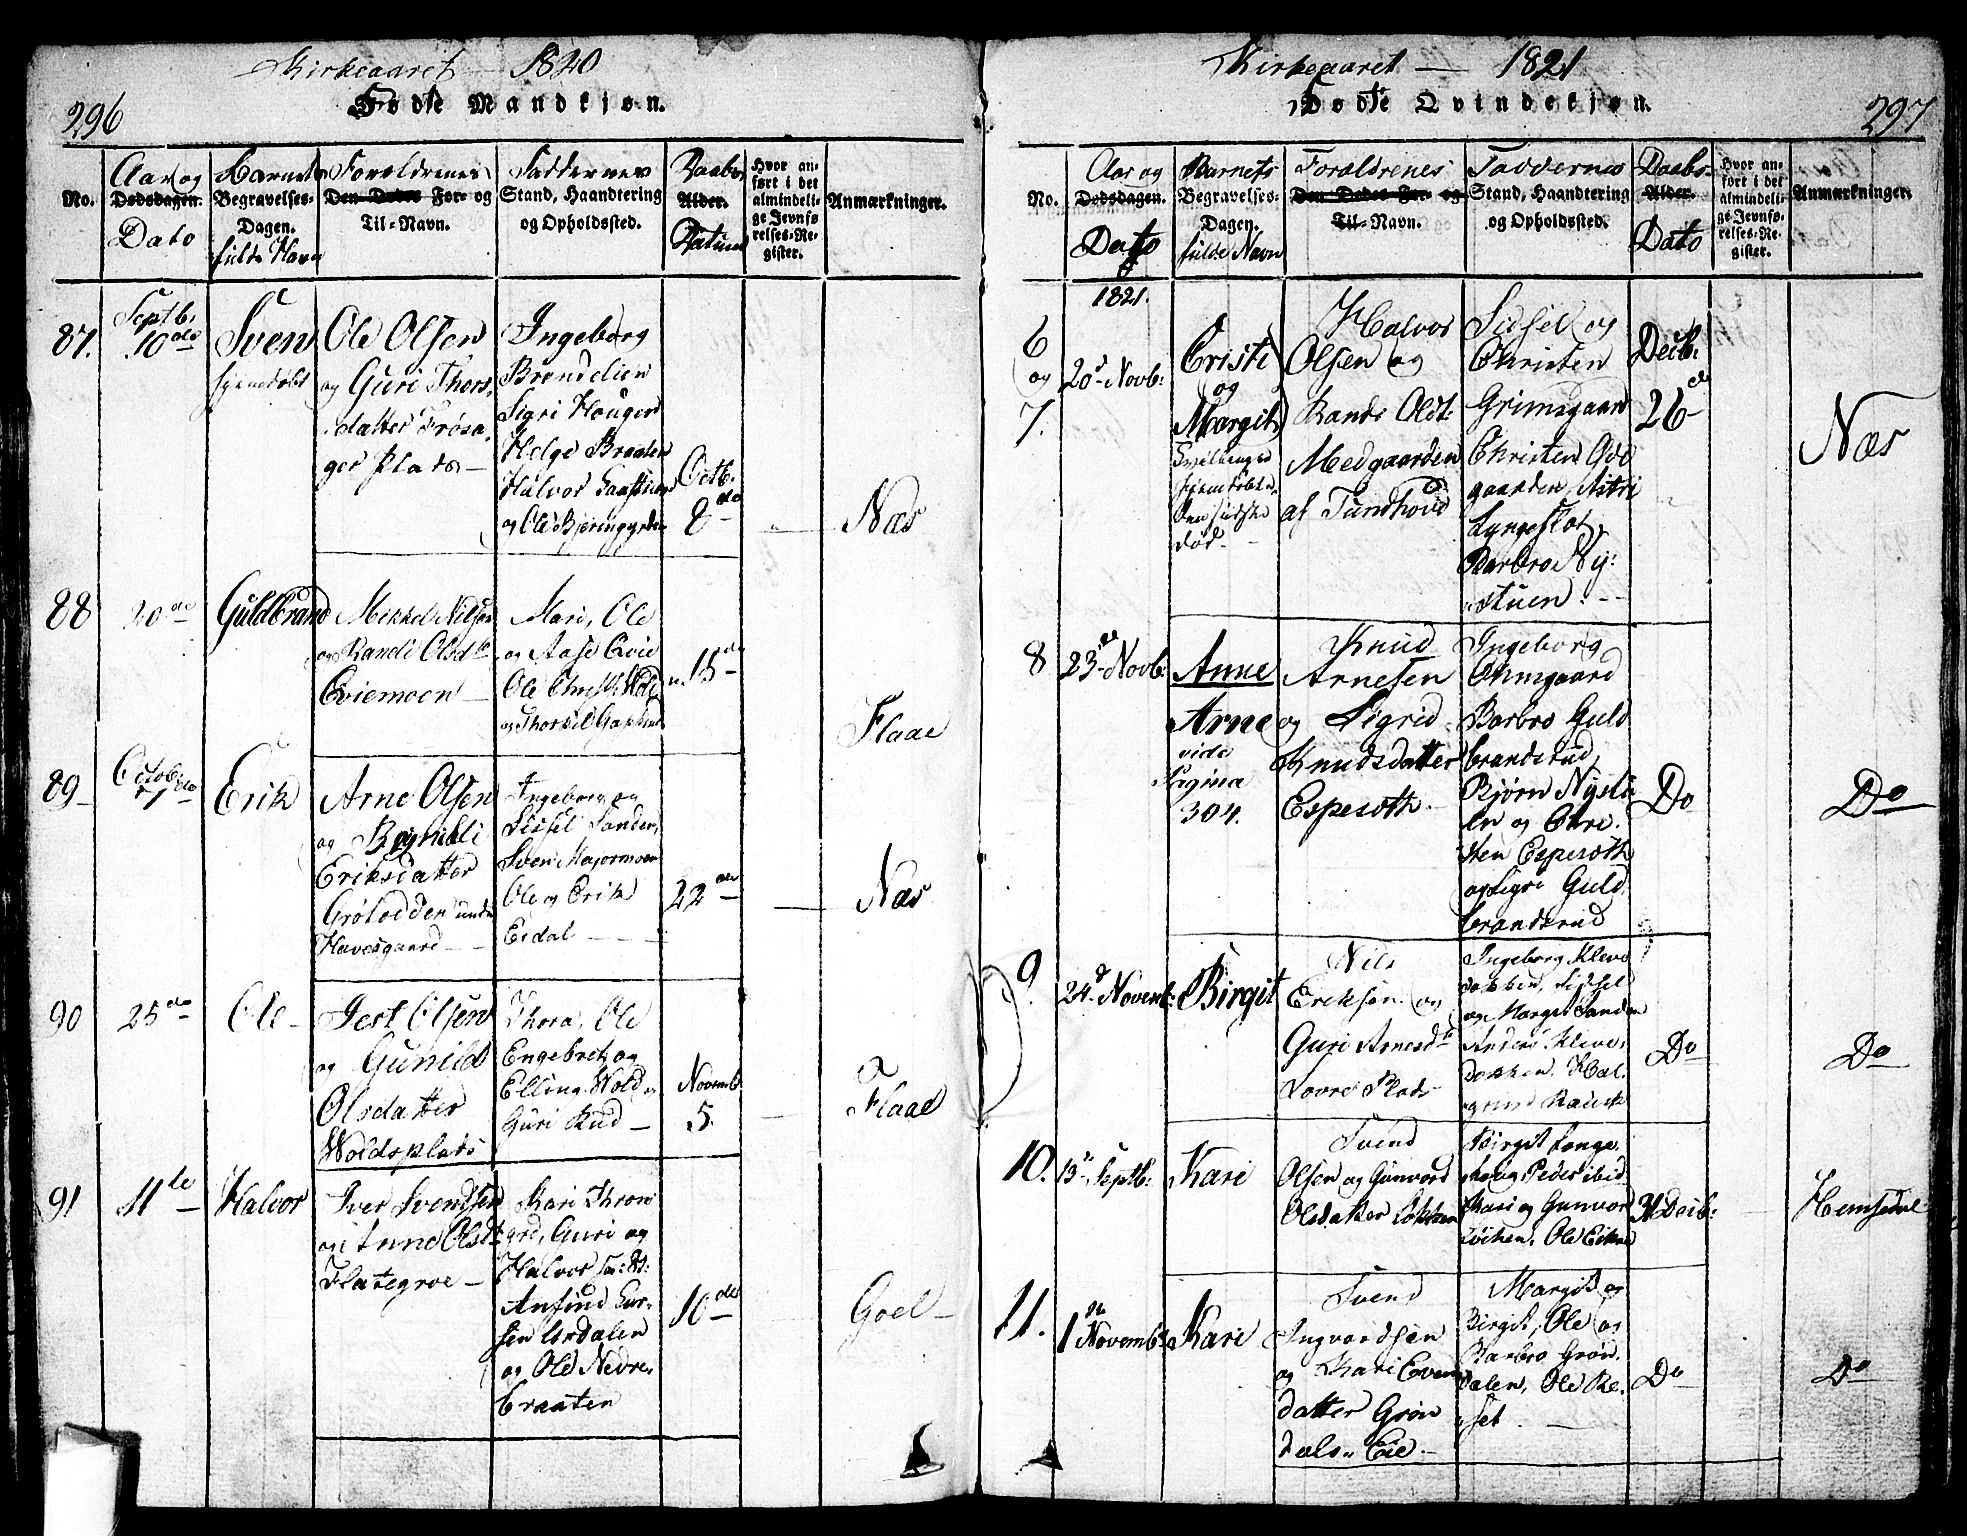 Kirkeaaret — 1820
296
Fødte Mandkjøn.
No.
Aar og
Dødsdagen.
Dato
Barnets
Begravelses-
Dagen.
fulde Navn
Forældrenes
Den Dødes For- og
Til-Navn.
Faddernes
Stand, Haandtering
og Opholdssted.
Daabs
Alder.
Datum
Hvor an-
ført i det
almindeli-
ge Jevnfø-
relses-Re-
gister.
Anmærkninger.
87.
Septb:
10de
Sven
hjemedøbt
Ole Olsen
og Guri Thors-
datter Frøsa-
ger Plads —
Ingeborg
Brendelien
Sigri Houger
Helge Braaten
Halvor
og Ole
Octb:
8de
Næs
88
20de
Guldbrand
Mekkel Nilsen
og Randi Olsdt
Eviemoen —
Mari, Ole
og Aase Qvie
Ole
og Thorkil
15de
Flaae
89
Octob:
Erik
Arne Olsen
og
Eriksdatter
Grøtodden under
Havesgaard
Ingeborg og
Sissel Sander,
Sven Majormoen
Ole og Erik
Eidal
22de
Næs
90
25de
Ole
Jest Olsen
og Gunild
Olsdatter
Woldsplads
Thora, Ole
Engebret og
Elling Wold og
Guri Rud —
Novemb
5.
Flaae
91
11te
Halvor
Iver Svendsen
og Anne Olsdt
Flategroe —
Kari Thron
Guri og
Halvor
Anfind Gur-
sen Urdalen
og Ole Nedre-
braaten
10de
Goel —
Kirkeaaret — 1821
Fødte Qvindekjøn.
297
No.
Aar og
Dødsdagen.
Dato
Barnets
Begravelses-
Dagen.
fulde Navn
Forældrenes
Den Dødes For- og
Til-Navn.
Faddernes
Stand, Haandtering
og Opholdssted.
Daabs-
Alder.
Dato
Hvor an-
ført i det
almindeli-
ge Jevnfø-
relses-Re-
gister.
Anmærkninger.
1821.
6
og
7.
20d Novb:
Cristi
og
Margit
Tvillinger
hjemedøbte,
den sidste
død.
Halvor
Olsen og
Randi Olsdt:
Medgaarden
af Tundhovd
Sidsel og
Christen
Grimsgaard
Christen
gaarden, Astri
Lyngeslot,
Barbro Ny-
stuen.
Decb:
26
Næs
8
23de Novb:
Anne
Arne
vide
Pagina
304.
Knud
Arnesen
og Sigrid
Knudsdatter
Esperoth.
Ingeborg
Barbro Guld
brandsrud,
Bjørn Nystu
en og Chri-
sten Esperoth
og Sigri Guld
brandsrud
Do
Do
9.
24d Novemb:
Birgit
Nils
Eriksen og
Guri Arnesdt
Lovre Plads
Ingeborg Kleve
dokken, Sidsel
og Margit Sanden
Anders Kleve-
dokken. Hal-
Do
Do
10.
13de Septb:
Kari
Svend
Olsen og Gunvord
Olsdatter Løkken
Birgit Lange
Peder ibid
Kari og Gunvor
Løkken, Ole
31 Decb:
Hemsedal
11.
1ste
Novemb:
Kari
Svend
Ingvardsen
og Kari Even
datter Grøn
dals Eie.
Margit og
Birgit, Ole og
Barbro Grøn-
dalen, Ole Re-
set.
Do
Do